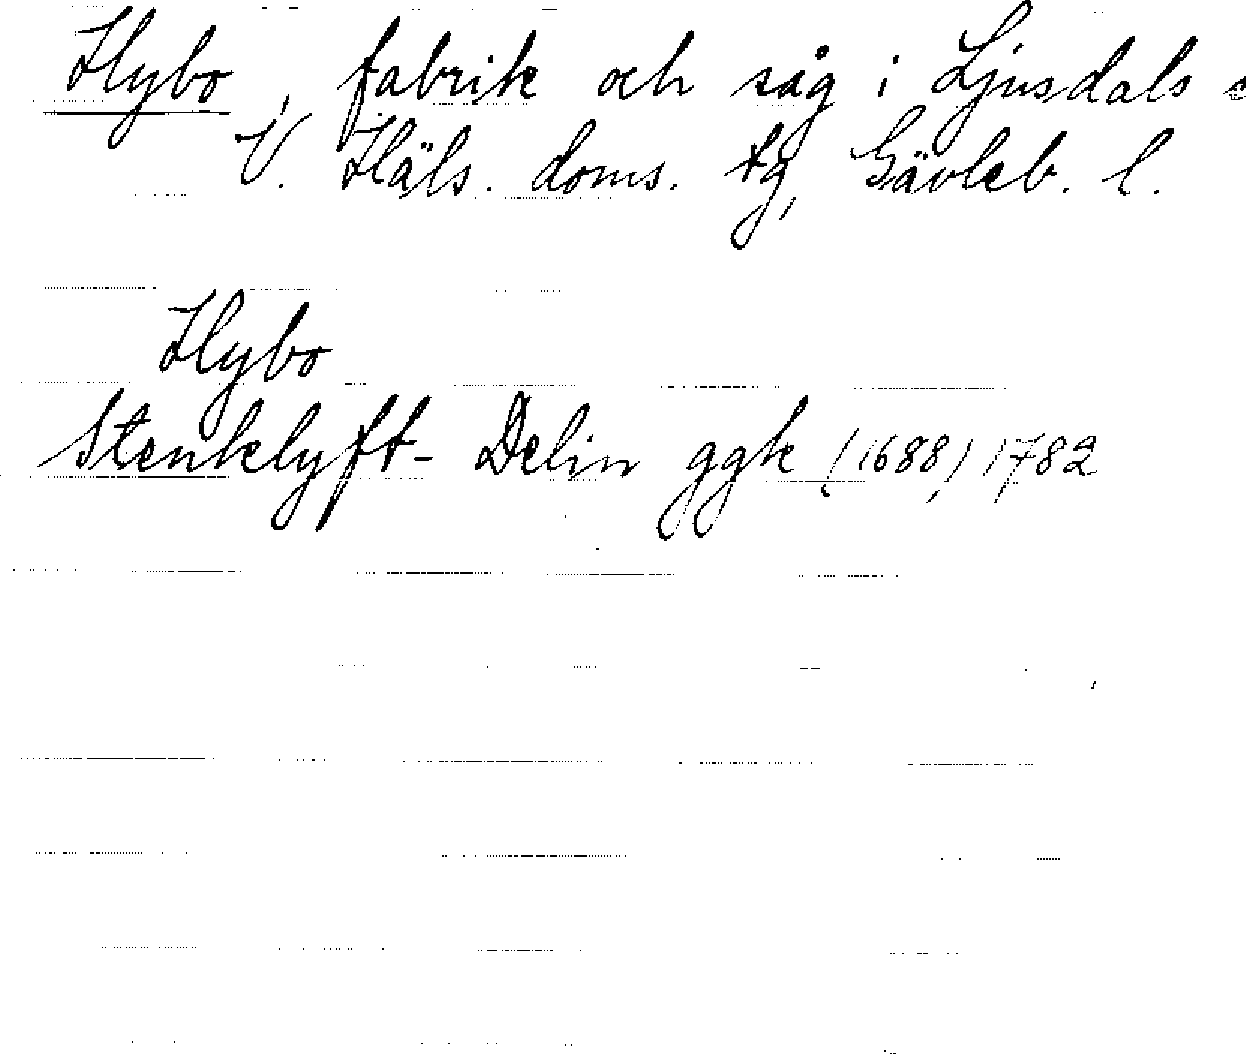 Hybo, fabrik och såg i Ljusdals s
V. Häls. doms. tg, Gävleb. l.
Hybo
Stenklyft- Delin ggk (1688) 1782